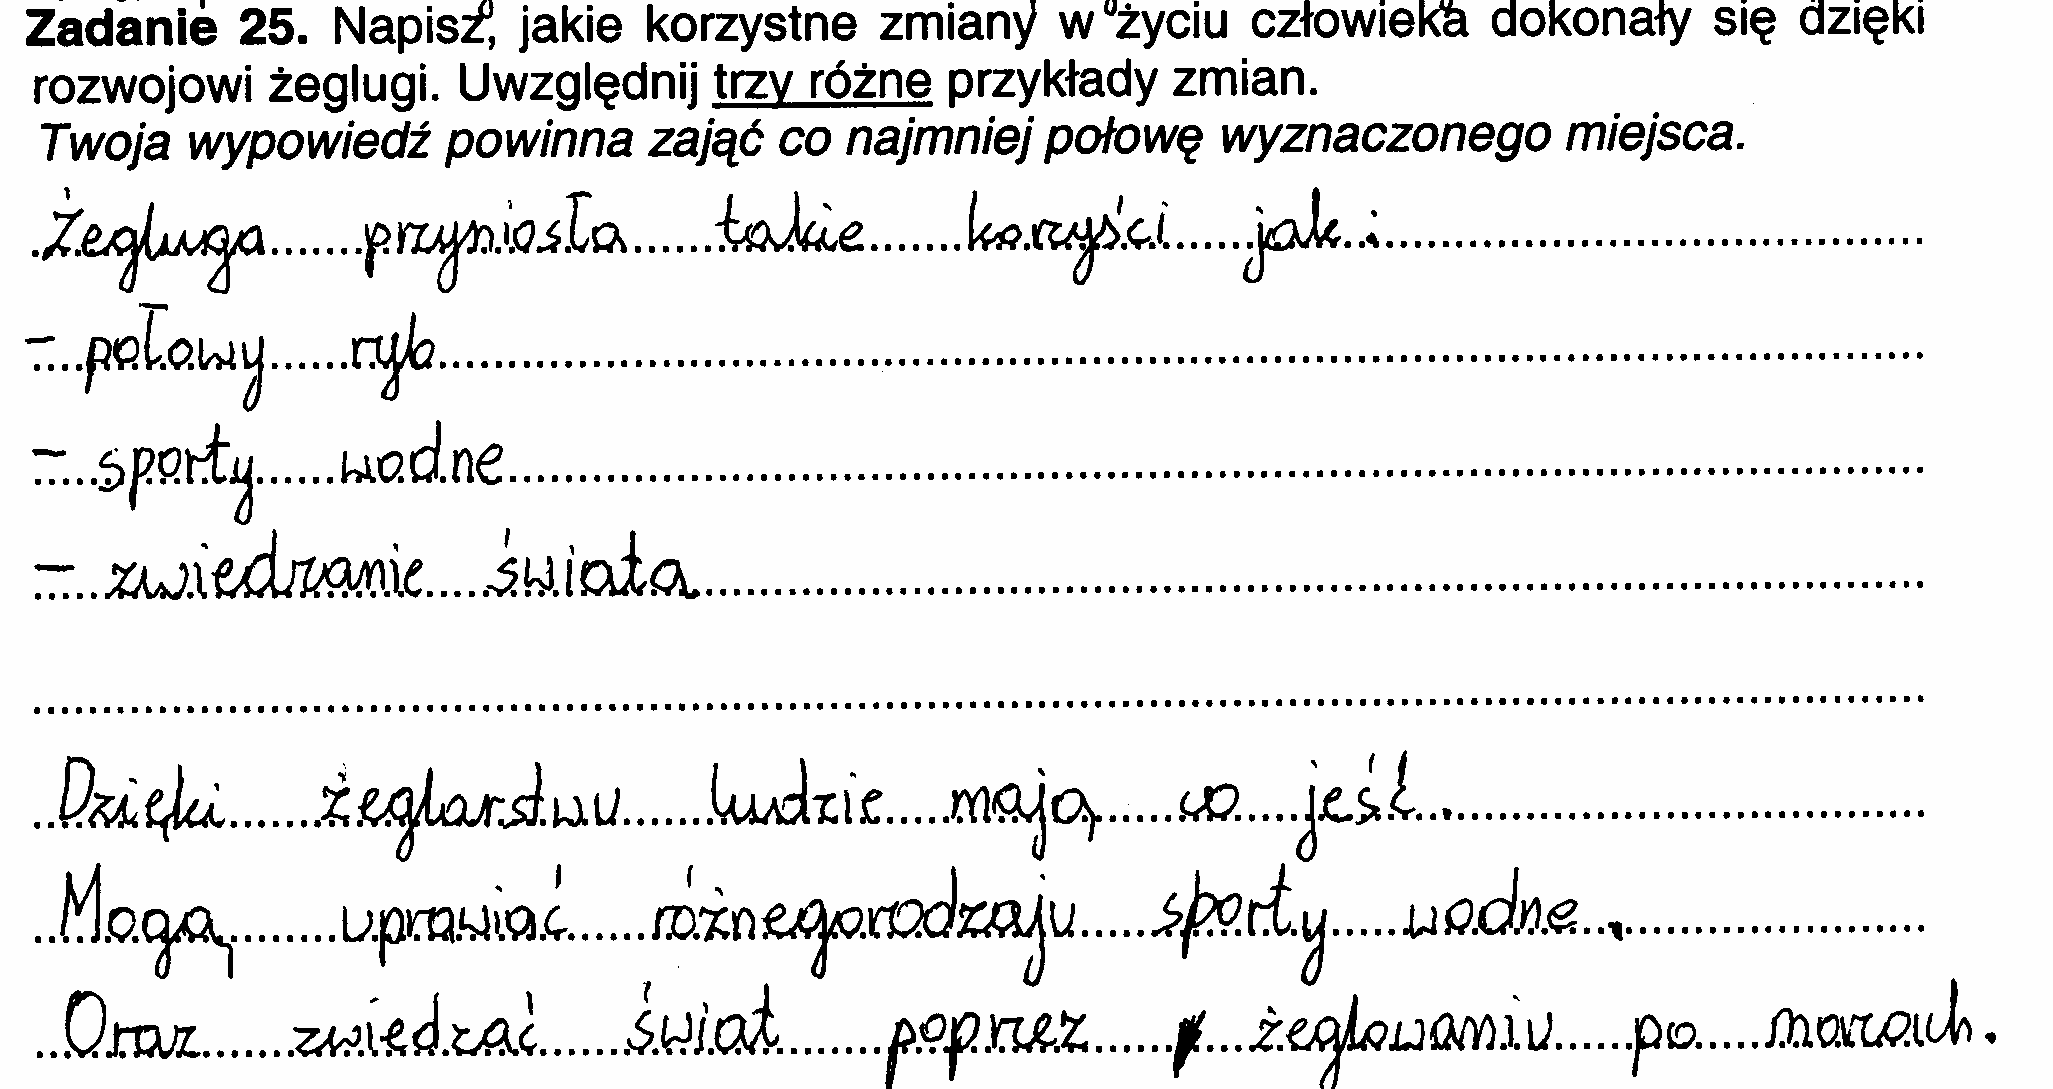 Zadanie 25. Napisz, jakie korzystne zmiany w życiu człowieka dokonały się dzięki
rozwojowi żeglugi. Uwzględnij trzy różne przykłady zmian.
Twoja wypowiedź powinna zająć co najmniej połowę wyznaczonego miejsca.
Żegluga przyniosła takie korzyści jak:
- połowy ryb
- sporty wodne
- zwiedzanie świata
Dzięki żeglarstwu ludzie mają co jeść.
Mogą uprawiać różnegorodzaju sporty wodne.
Oraz zwiedzać świat poprzez żeglowaniu po morzach.